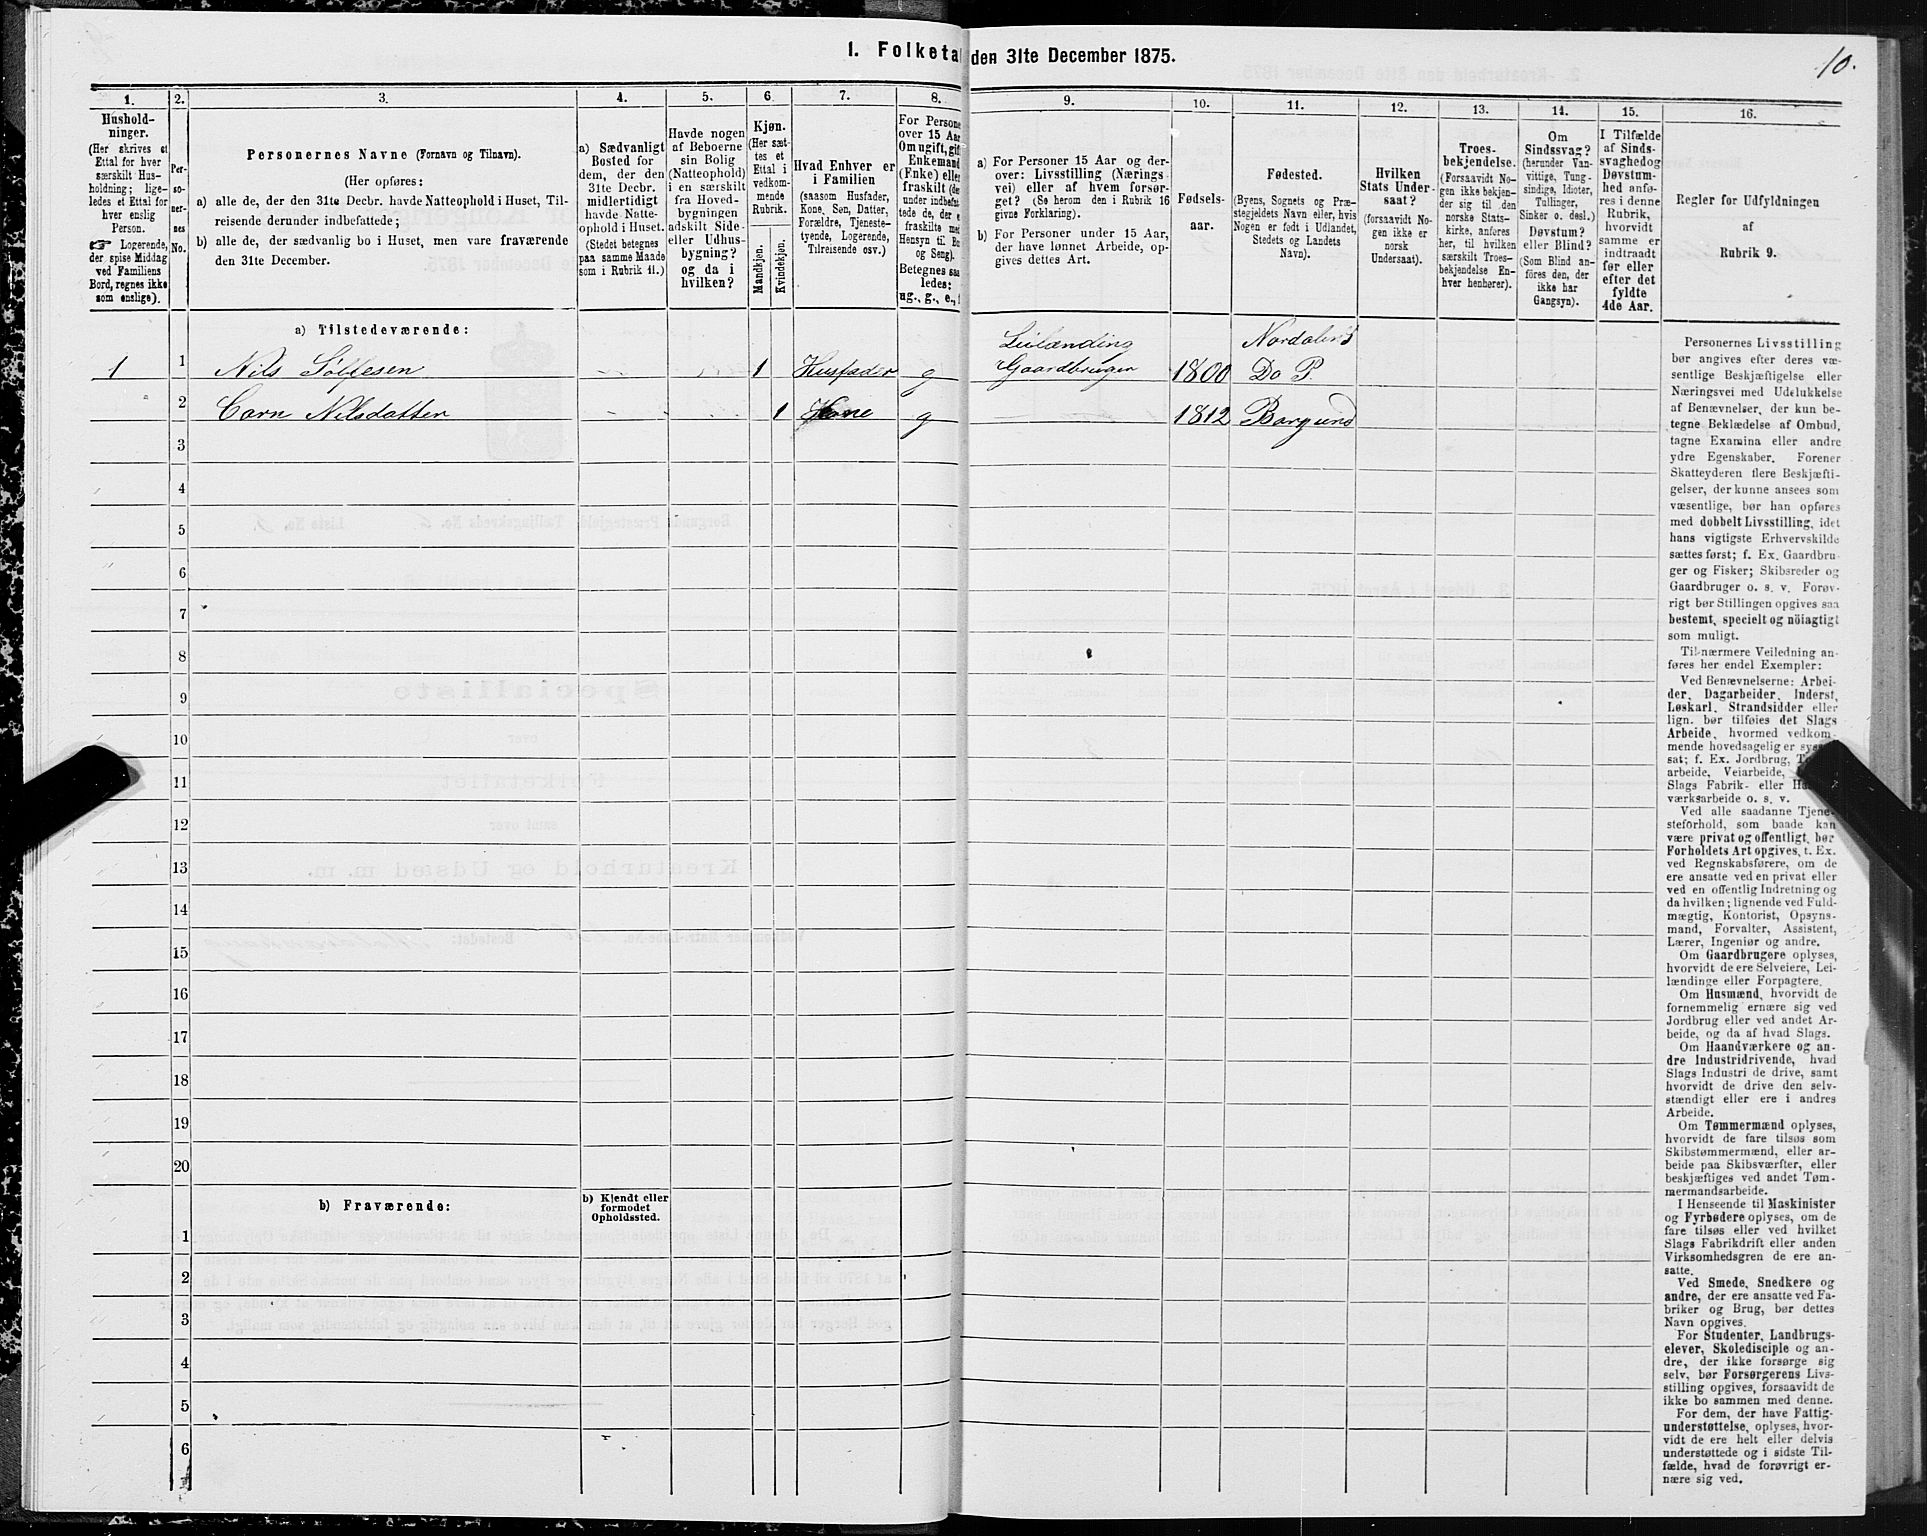 1. Folketal den 31te December 1875.
10.
1.
2.
3.
4.
5.
6
7.
8.
9.
10.
11.
12.
13.
14.
15.
16.
Hushold-
ninger.
(Her skrives et
Ettal for hver
særskilt Hus-
holdning; lige-
ledes et Ettal for
hver enslig
Person.
☞ Logerende,
der spise Middag
ved Familiens
Bord, regnes ikke
som enslige).
Per-
so-
ner-
nes
No.
Personernes Navne (Fornavn og Tilnavn).
(Her opføres:
a) alle de, der den 31te Decbr. havde Natteophold i Huset, Til-
reisende derunder indbefattede;
b) alle de, der sædvanlig bo i Huset, men vare fraværende
den 31te December.
a) Sædvanligt
Bosted for
dem, der den
31te Decbr.
midlertidigt
havde Natte-
ophold i Huset.
(Stedet betegnes
paa samme Maade
som i Rubrik 11.)
Havde nogen
af Beboerne
sin Bolig
(Natteophold)
i en særskilt
fra Hoved-
bygningen
adskilt Side-
eller Udhus-
bygning?
og da i
hvilken?
Kjøn.
(Her sæt-
tes et
Ettal i
vedkom-
mende
Rubrik.
Mandkjøn.
Kvindekjøn.
Hvad Enhver er
i Familien
(saasom Husfader,
Kone, Søn, Datter,
Forældre, Tjeneste-
tyende, Logerende,
Tilreisende osv.)
For Persone
over 15 Aar
Om ugift, gift
Enkemand
(Enke) elle
fraskilt (de
under indbefat
tede de, der e
fraskilte me
Hensyn til Bo
og Seng).
Betegnes saa
ledes:
ug., g., e., f
a) For Personer 15 Aar og der-
over: Livsstilling (Nærings
vei) eller af hvem forsør-
get? (Se herom den i Rubrik 16
givne Forklaring).
b) For Personer under 15 Aar,
der have lønnet Arbeide, op-
gives dettes Art.
Fødsels-
aar.
Fødested.
(Byens, Sognets og Præ-
stegjeldets Navn eller, hvis
Nogen er født i Udlandet,
Stedets og Landets
Navn).
Hvilken
Stats Under-
saat?
(forsaavidt No-
gen ikke er
norsk
Undersaat).
Troes-
bekjendelse.
(Forsaavidt No-
gen ikke bekjen-
der sig til den
norske Stats-
kirke, anføres
her, til hvilken
særskilt Troes-
bekjendelse En-
hver henhører).
Om
Sindssvag?
(herunder Van-
vittige, Tung-
sindige, Idioter,
Tullinger,
Sinker o. desl.)
Døvstum?
eller Blind?
(Som Blind an-
føres den, der
ikke har
Gangsyn).
I Tilfælde
af Sinds-
svaghedog
Døvstum-
hed anfø-
res i denne
Rubrik,
hvorvidt
samme er
indtraadt
før eller
efter det
fyldte
4de Aar.
Regler for Udfyldningen
af
Rubrik 9.
a) Tilstedeværende:
Leilænding Nordalens
1 1 Nils Sølfesen 1 Husfader g Gaardbruger 1800 Do P.
2 Carn Nilsdatter 1 Kone g 1812 Borgund
3
4
5
6
7
8
9
10
11
12
13
14
15
16
17
18
19
20
b) Fraværende:
b) Kjendt eller
formodet
Opholdssted.
1
2
3
4
5
6
Personernes Livsstilling
bør angives efter deres væ-
sentlige Beskjæftigelse eller
Næringsvei med Udelukkelse
af Benævnelser, der kun be-
tegne Beklædelse af Ombud,
tagne Examina eller andre
ydre Egenskaber. Forener
Skatteyderen flere Beskjæfti-
gelser, der kunne ansees som
væsentlige, bør han opføres
med dobbelt Livsstilling, idet
hans vigtigste Erhvervskilde
sættes først; f. Ex. Gaardbru-
ger og Fisker; Skibsreder og
Gaardbruger o. s. v. Forøv-
rigt bør Stillingen opgives saa
bestemt, specielt og nöiagtigt
som muligt.
Til nærmere Veiledning an-
føres her endel Exempler:
Ved Benævnelserne: Arbei-
der, Dagarbeider, Inderst,
Løskarl, Strandsidder eller
lign. bør tilføies det Slags
Arbeide, hvormed vedkom-
mende hovedsagelig er syssel
sat; f. Ex. Jordbrug,
arbeide, Veiarbeide,
Slags Fabrik- eller
værksarbeide o. s. v.
Ved alle saadanne Tjene-
steforhold, som baade kan
være privat og offentligt, bør
Forholdets Art opgives, t. Ex.
ved Regnskabsførere, om de
ere ansatte ved en privat eller
ved en offentlig Indretning og
da hvilken; lignende ved Fuld-
mægtig, Kontorist, Opsyns-
mand, Forvalter, Assistent,
Lærer, Ingeniør og andre.
Om Gaardbrugere oplyses,
hvorvidt de ere Selveiere, Lei-
lændinge eller Forpagtere.
Om Husmænd, hvorvidt de
fornemmelig ernære sig ved
Jordbrug eller ved andet Ar-
beide, og da af hvad Slags.
Om Haandværkere og an-
dre Industridrivende, hvad
Slags Industri de drive, samt
hvorvidt de drive den selv-
stændigt eller ere i andres
Arbeide.
Om Tømmermænd oplyses,
hvorvidt de fare tilsøs som
Skibstømmermænd, eller ar-
beide paa Skibsværfter, eller
beskjæftiges ved andet Tøm-
mermandsarbeide.
I Henseende til Maskinister
og Fyrbødere oplyses, om de
fare tilsøs eller ved hvilket
Slags Fabrikdrift eller anden
Virksomhedsgren de ere an-
satte.
Ved Smede, Snedkere og
andre, der ere ansatte ved Fa-
briker og Brug, bør dettes
Navn opgives.
For Studenter, Landbrugs-
elever, Skoledisciple og an-
dre, der ikke forsørge sig
selv, bør Forsørgerens Livs-
stilling opgives, forsaavidt de
ikke bo sammen med denne.
For dem, der have Fattig-
understøttelse, oplyses, hvor-
vidt de ere helt eller delvis
understøttede og i sidste Til-
fælde, hvad de forøvrigt er-
nære sig ved.